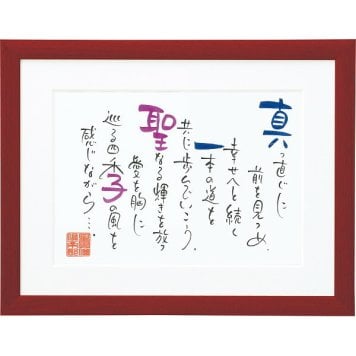 真っ直ぐに
前を見つめ
幸せへと続く
一本の道を
共に歩んでいこう
聖なる輝きを放つ
愛を胸に
巡る四季子の風を
感じながら…。